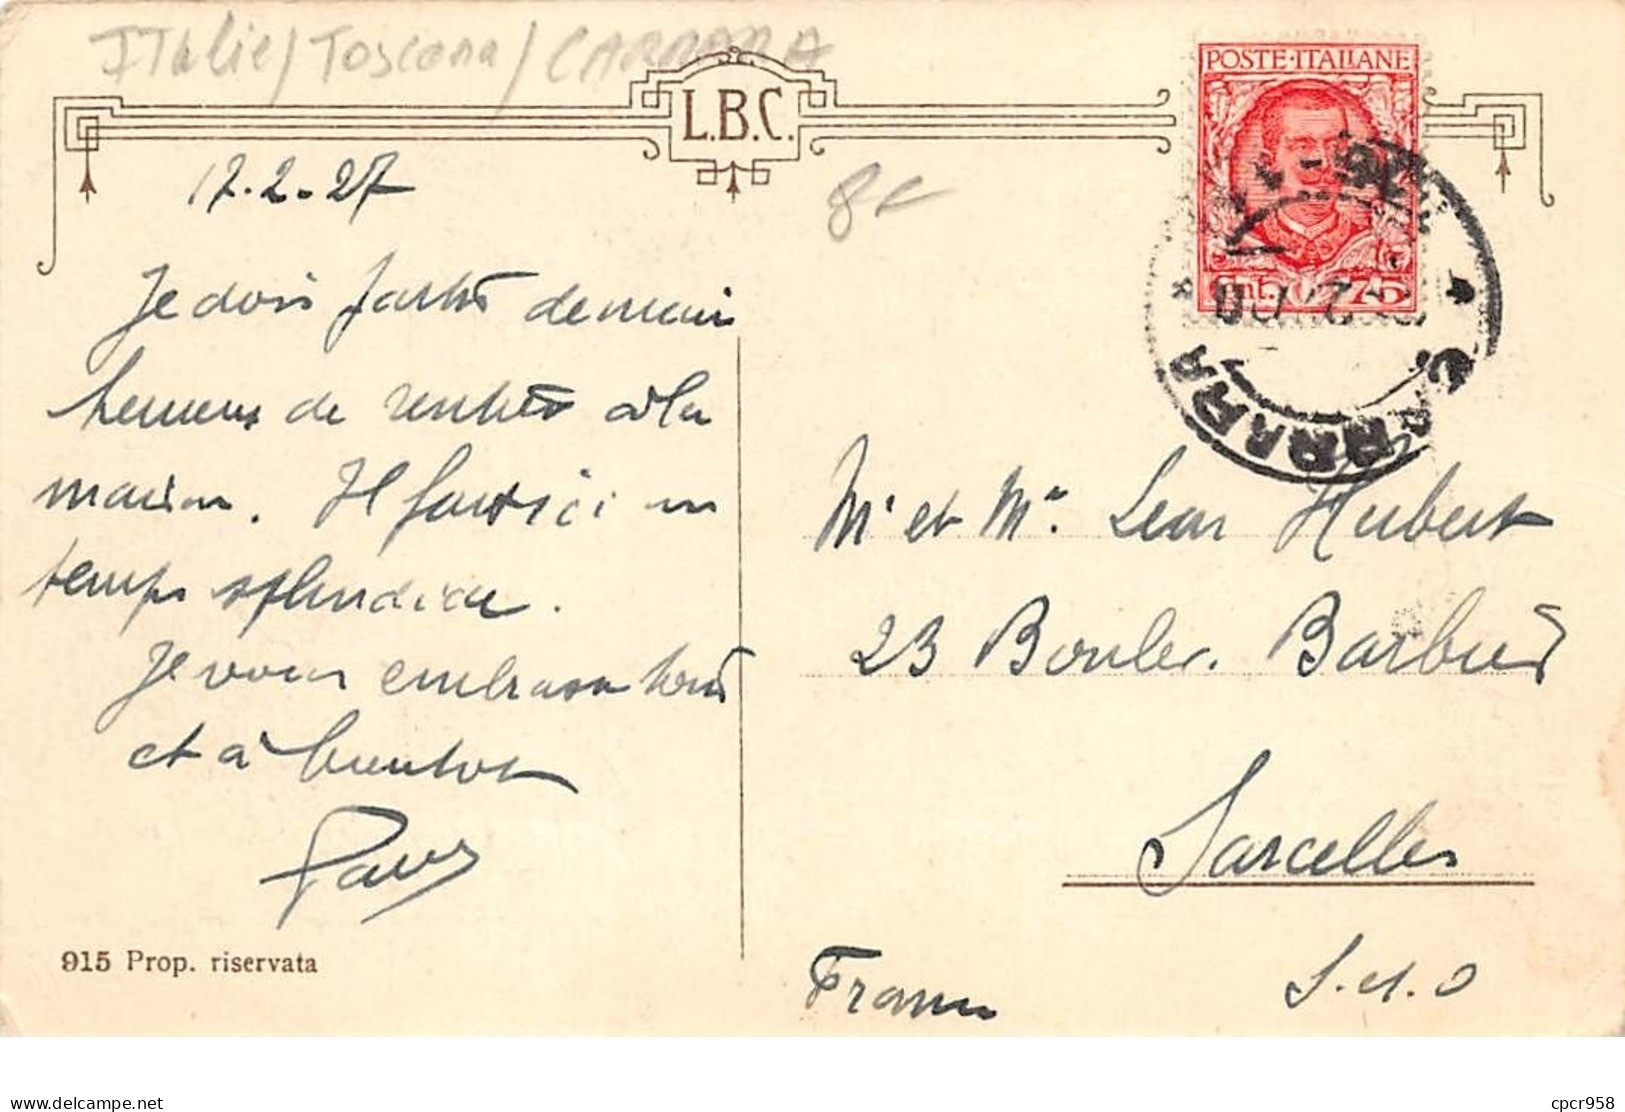 ITalie/Toscana/CARRARA
L.B.C.
POSTE·ITALIANE
Cent. 75
CARRARA
17.2.27
8€
Je dois partir demain
heureux de rentrer à la
maison. Il fait ici un
temps splendide.
Je vous embrasse tous
et à bientot
Paul
915 Prop. riservata
Mr et Me. Leon Hubert
23 Boulev. Barbier
Sarcelles
S. et. O
France
delcampe.net
cpcr958